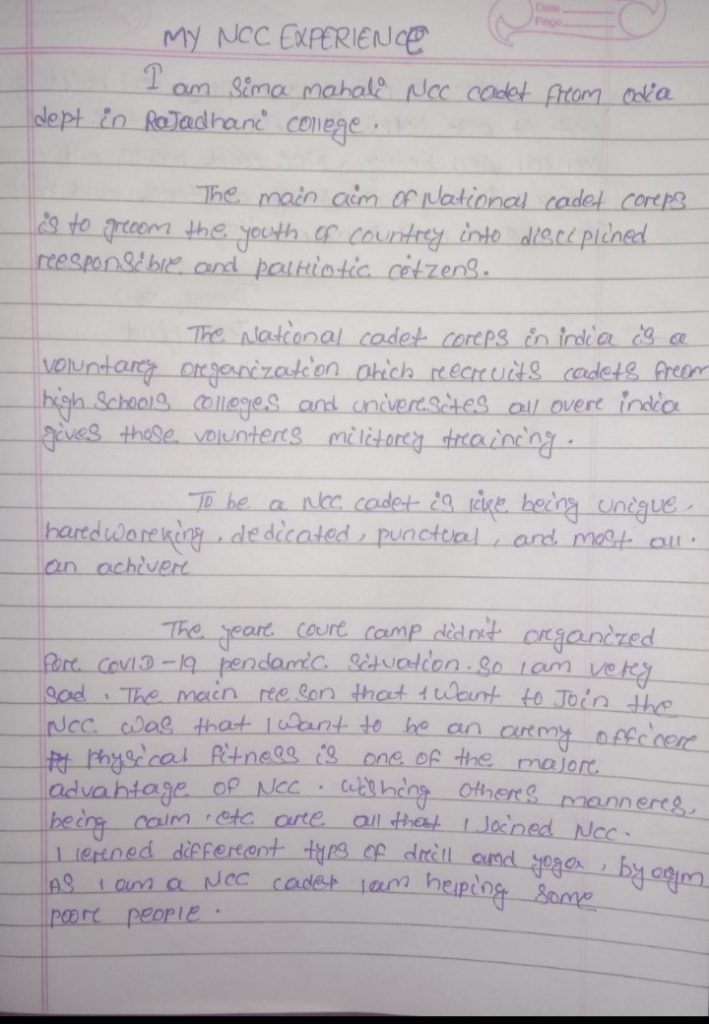 Date
Page
MY NCC EXPERIENCE
I am Sima mahali NCC cadet from odia
dept in Rajadhani college.
The main aim of National cadet coreps
is to groom the youth of country into discipined
reesponsible and patriotic citzens.
The National cadet coreps in india is a
voluntarcy oreganization which reecruits cadets from
high schools colleges and univeresites all overe india
gives those volunteres militorcy treaining.
To be a NCC cadet is like being unique,
haredworeking, dedicated, punctual, and most all.
an achivere
The yeare coure camp didn't oreganized
fore covid-19 pendamic situation. so i am verey
sad. The main reeson that i want to Join the
NCC was that i want to be an aremy officere
physical fitness is one of the majore
advantage of NCC. wishing otheres manneres,
being calm, etc aree all that i Joined NCC.
i lerened differeent typs of dreill and yoga,
As i am a NCC cadet i am helping some
poore people.